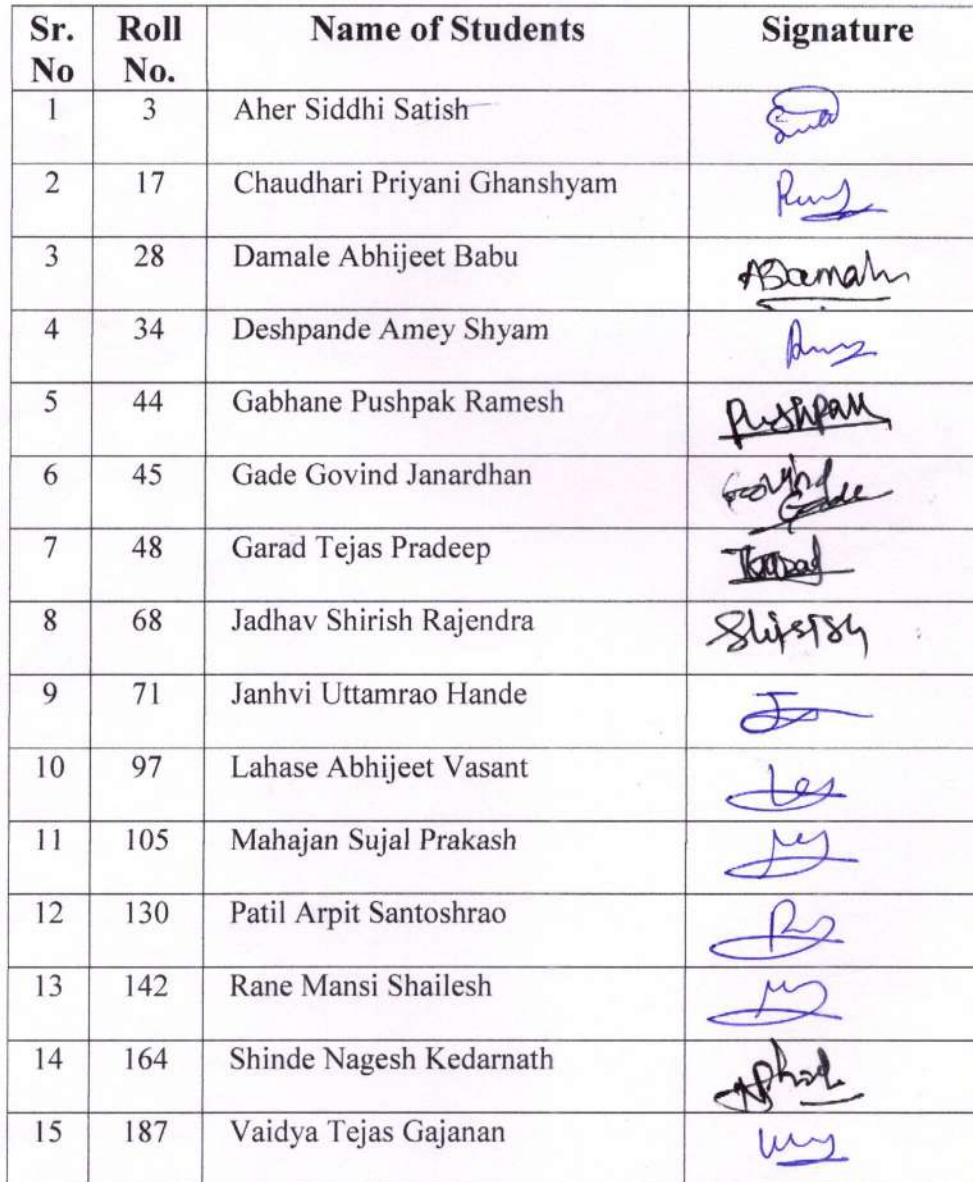 Sr. No Roll No. Name of Students Signature
1 3 Aher Siddhi Satish
2 17 Chaudhari Priyani Ghanshyam
3 28 Damale Abhijeet Babu
4 34 Deshpande Amey Shyam
5 44 Gabhane Pushpak Ramesh Pushpak
6 45 Gade Govind Janardhan Govind Gade
7 48 Garad Tejas Pradeep
8 68 Jadhav Shirish Rajendra
9 71 Janhvi Uttamrao Hande
10 97 Lahase Abhijeet Vasant
11 105 Mahajan Sujal Prakash
12 130 Patil Arpit Santoshrao
13 142 Rane Mansi Shailesh
14 164 Shinde Nagesh Kedarnath
15 187 Vaidya Tejas Gajanan